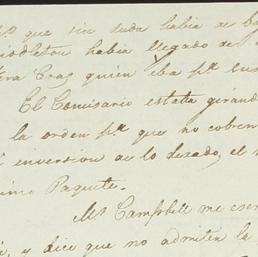 que sin duda habia de
Middleton habia llegado de
Vera Cruz quien iba pa.
El Comisario estaba girando
la orden pa. que no cobren
inversion de lo dexado, el
Paquete.
Mr. Campbell me
, y dice que no admiten la